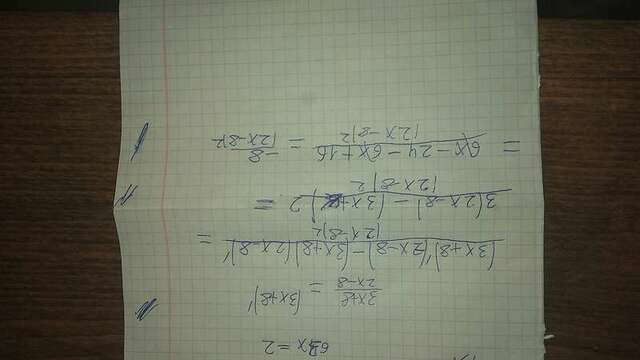 3x+8 / 2x-8 = (3x+8)'
(3x+8)'(2x-8)-(3x+8)(2x-8)' / (2x-8)2 =
3(2x-8)-(3x+8)2 / (2x-8)2 =
= 6x-24-6x+16 / (2x-8)2 = -8 / (2x-8)2